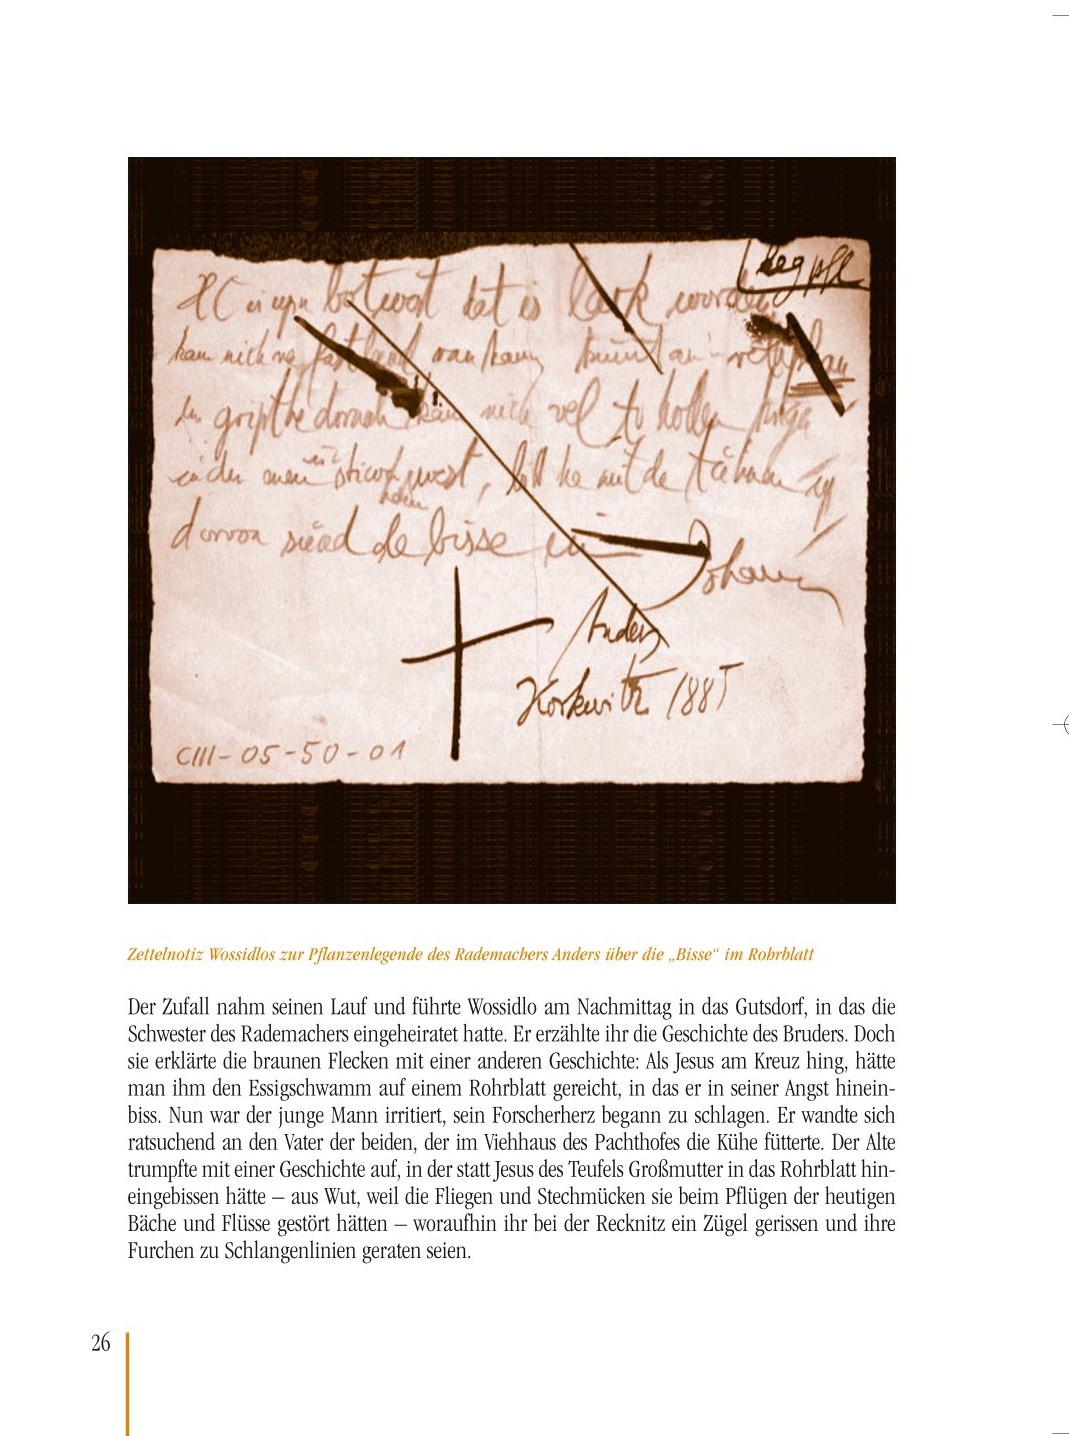 botwat dat is lack worden
kan nich
dornah kän nich vel to hollen
, bitt he mit de tähnen
dorvon sünd de bisse in
Johann
Anders
Korkwitz 1885
CIII-05-50-01
Zettelnotiz Wossidlos zur Pflanzenlegende des Rademachers Anders über die „Bisse“ im Rohrblatt
Der Zufall nahm seinen Lauf und führte Wossidlo am Nachmittag in das Gutsdorf, in das die
Schwester des Rademachers eingeheiratet hatte. Er erzählte ihr die Geschichte des Bruders. Doch
sie erklärte die braunen Flecken mit einer anderen Geschichte: Als Jesus am Kreuz hing, hätte
man ihm den Essigschwamm auf einem Rohrblatt gereicht, in das er in seiner Angst hinein-
biss. Nun war der junge Mann irritiert, sein Forscherherz begann zu schlagen. Er wandte sich
ratsuchend an den Vater der beiden, der im Viehhaus des Pachthofes die Kühe fütterte. Der Alte
trumpfte mit einer Geschichte auf, in der statt Jesus des Teufels Großmutter in das Rohrblatt hin-
eingebissen hätte – aus Wut, weil die Fliegen und Stechmücken sie beim Pflügen der heutigen
Bäche und Flüsse gestört hätten – woraufhin ihr bei der Recknitz ein Zügel gerissen und ihre
Furchen zu Schlangenlinien geraten seien.
26